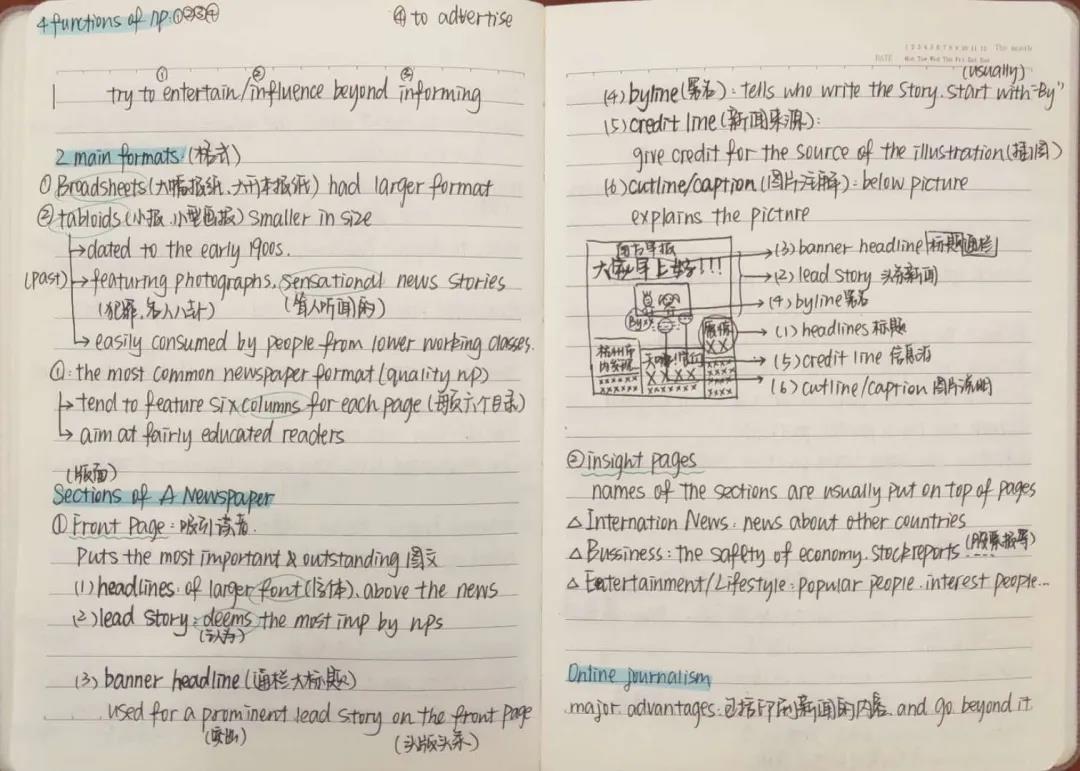 4 functions of np:①②③④ ④ to advertise
① ② ③
try to entertain/influence beyond informing
2 main formats.(格式)
① Broadsheets(大幅报纸.大开本报纸) had larger format
② tabloids(小报.小型画报) smaller in size
→dated to the early 1900s.
(past) →featuring photographs, sensational news stories
(犯罪,名人八卦) (耸人听闻的)
→ easily consumed by people from lower working classes.
①: the most common newspaper format (quality np)
→ tend to feature six columns for each page (每页六个目录)
→ aim at fairly educated readers
(版面)
Sections of A Newspaper
① Front Page: 吸引读者.
Puts the most important & outstanding 图文
(1) headlines: of larger font(字体), above the news
(2) lead story: deems the most imp by nps
(认为)
(3) banner headline(通栏大标题)
used for a prominent lead story on the front page
(突出) (头版头条)
DATE
(usually)
(4) byline(署名): tells who write the story. start with "By"
(5) credit line (新闻来源):
give credit for the source of the illustration(插图)
(6) cutline/caption (图片注解): below picture
explains the picture
大家早上好!!!
→(3) banner headline 标题通栏
→(2) lead story 头条新闻
→(4) byline 署名
→(1) headlines 标题
→(5) credit line 信息源
→(6) cutline/caption 图片说明
② insight pages
names of the sections are usually put on top of pages
△ Internation News: news about other countries
△ Bussiness: the safety of economy. stock reports (股票报导)
△ Entertainment/Lifestyle: popular people. interest people...
Online journalism
major advantages: 包括印刷新闻的内容, and go beyond it